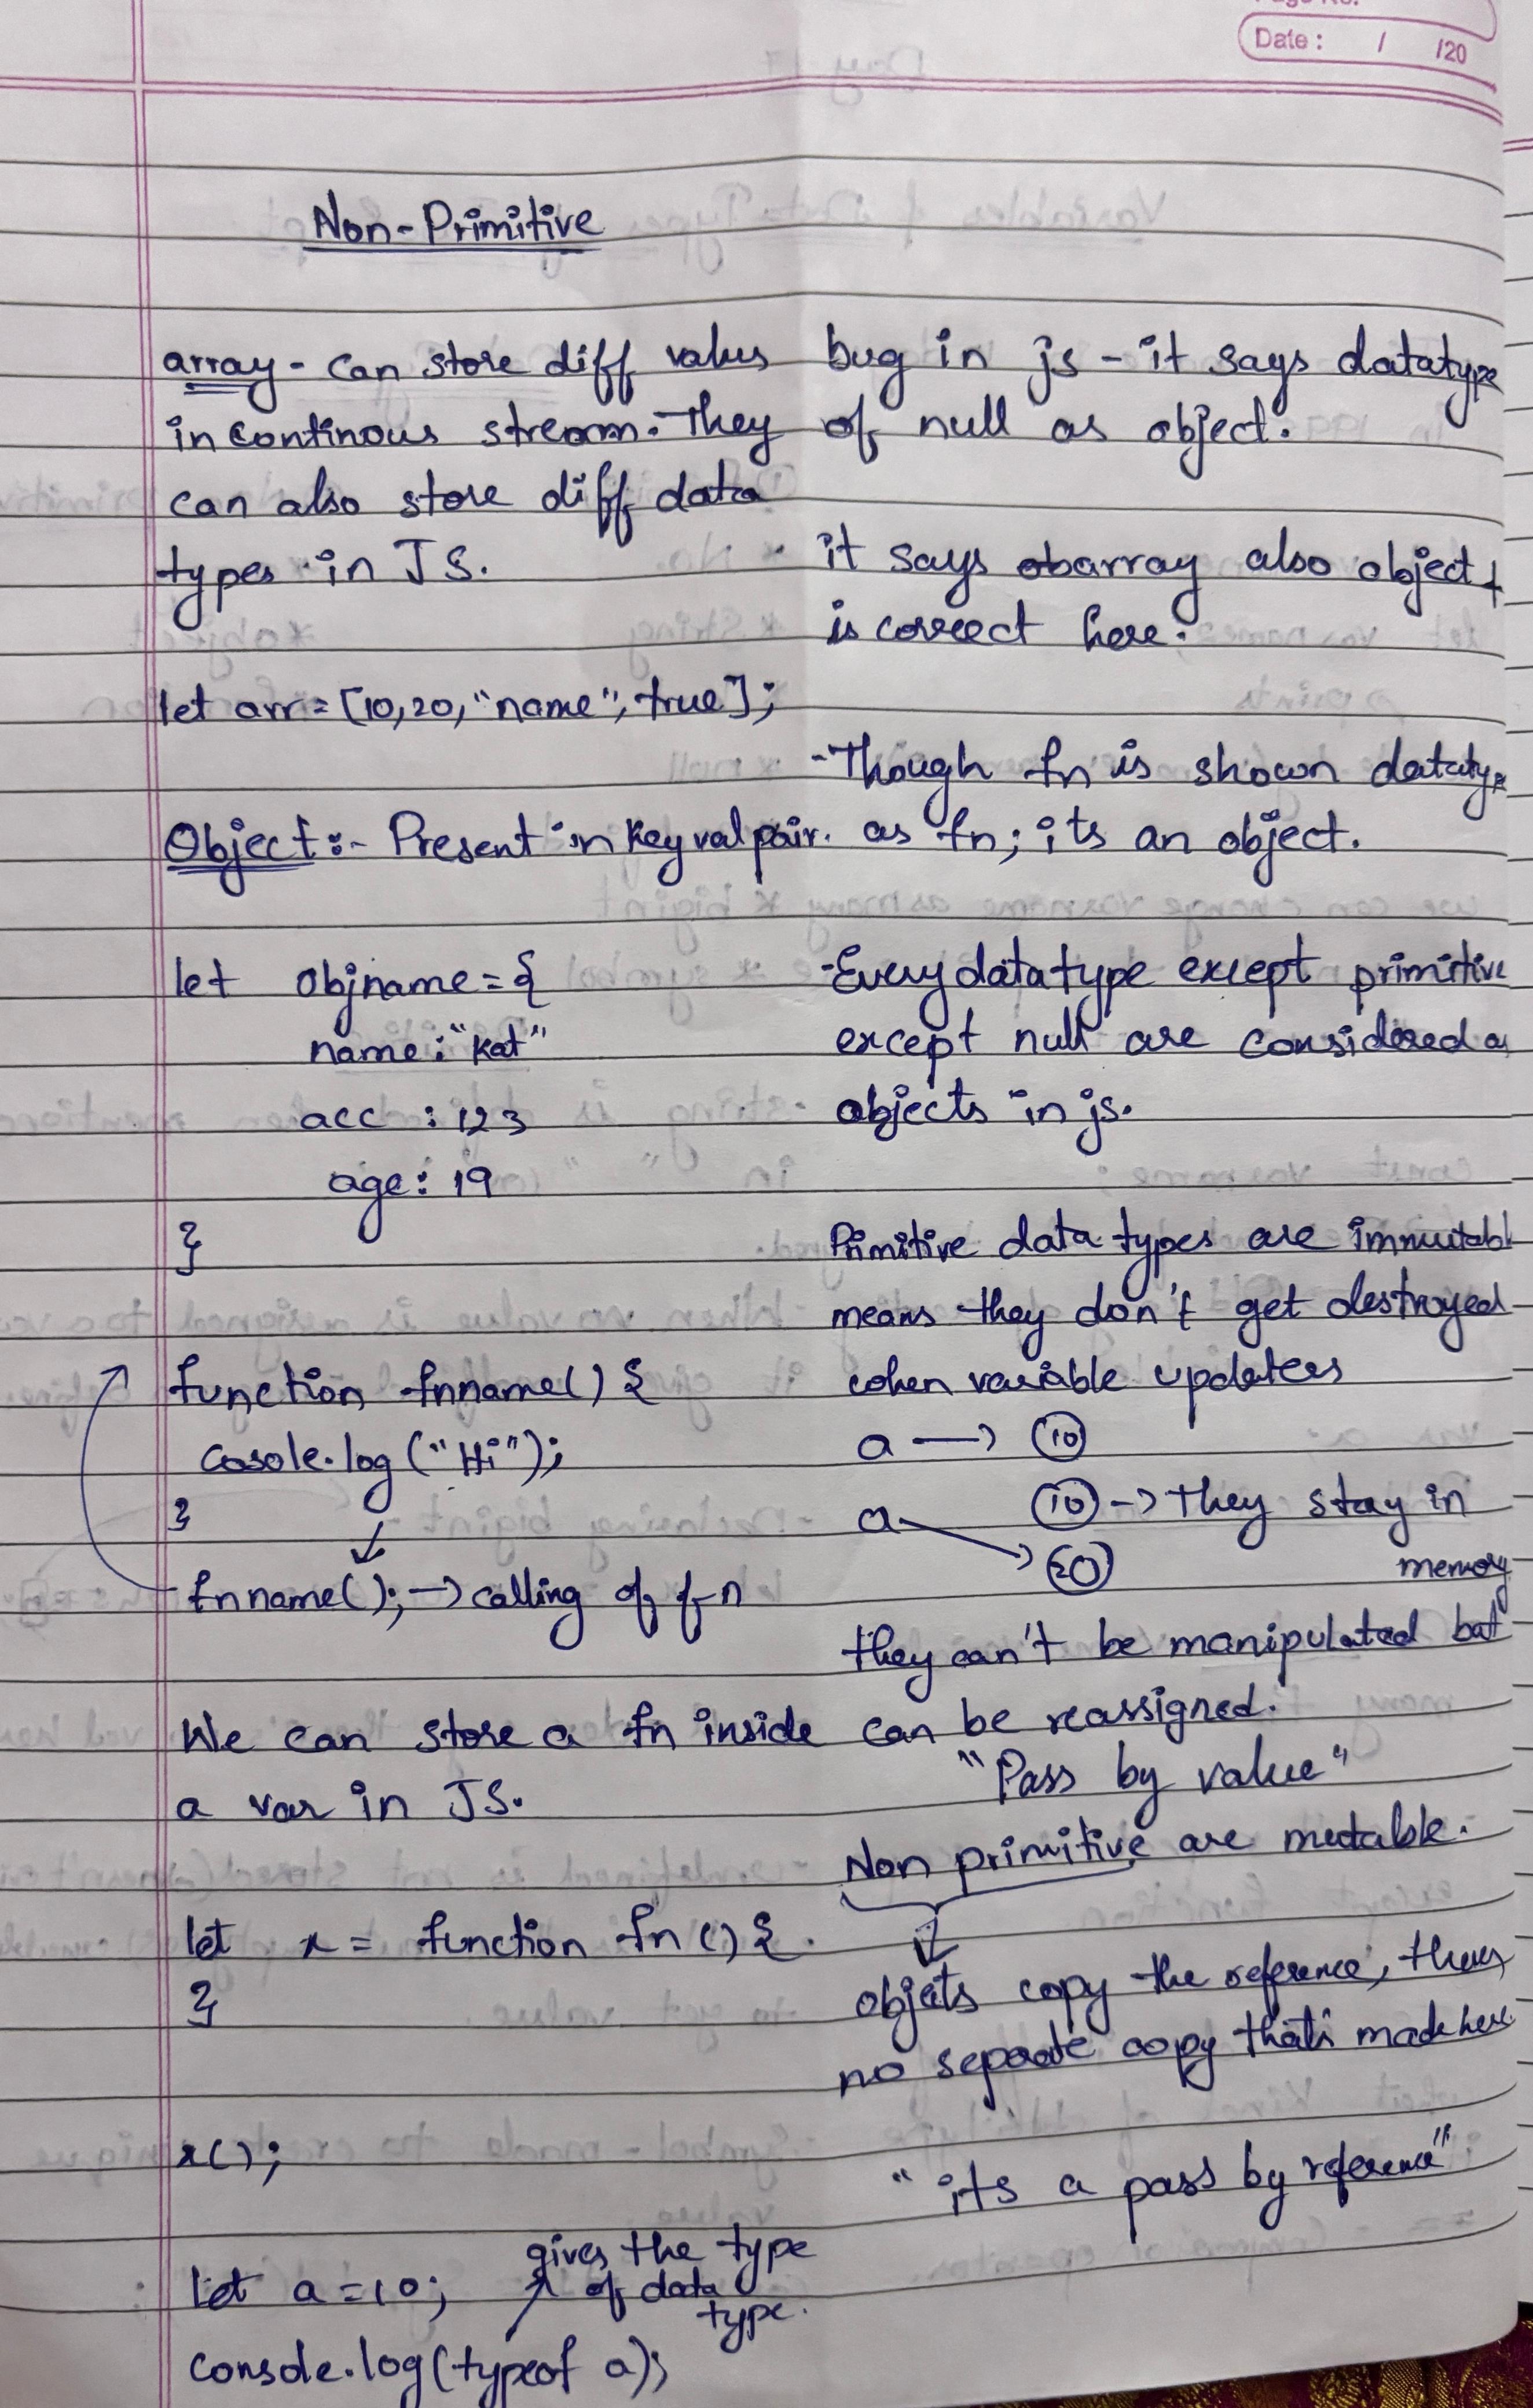 Date : / /20
Non-Primitive
array - Can store diff values
in continous stream. They
can also store diff data
types in JS.
let arr = [10,20,"name", true];
Object :- Present in key val pair.
let objname = {
name : "kat"
acc : 123
age : 19
}
function fnname() {
cosole.log ("Hi");
}
fnname(); → calling of fn
We can store a fn inside
a var in JS.
let x = function fn () {
}
x();
gives the type
of data
type.
let a = 10;
console.log(typeof a);
bug in js - it says datatype
of null as object.
it says array also object,
is correct here.
- Though fn is shown datatype
as fn; its an object.
- Every datatype except primitive
except null are considered as
objects in js.
Primitive data types are immutabl
means they don't get destroyed
when variable updates
a → 10
a 10 → They stay in
→ 20 memory
they can't be manipulated but
can be reassigned.
"Pass by value"
Non primitive are mutable.
objects copy the reference, theres
no separate copy that's made here
" its a pass by reference"